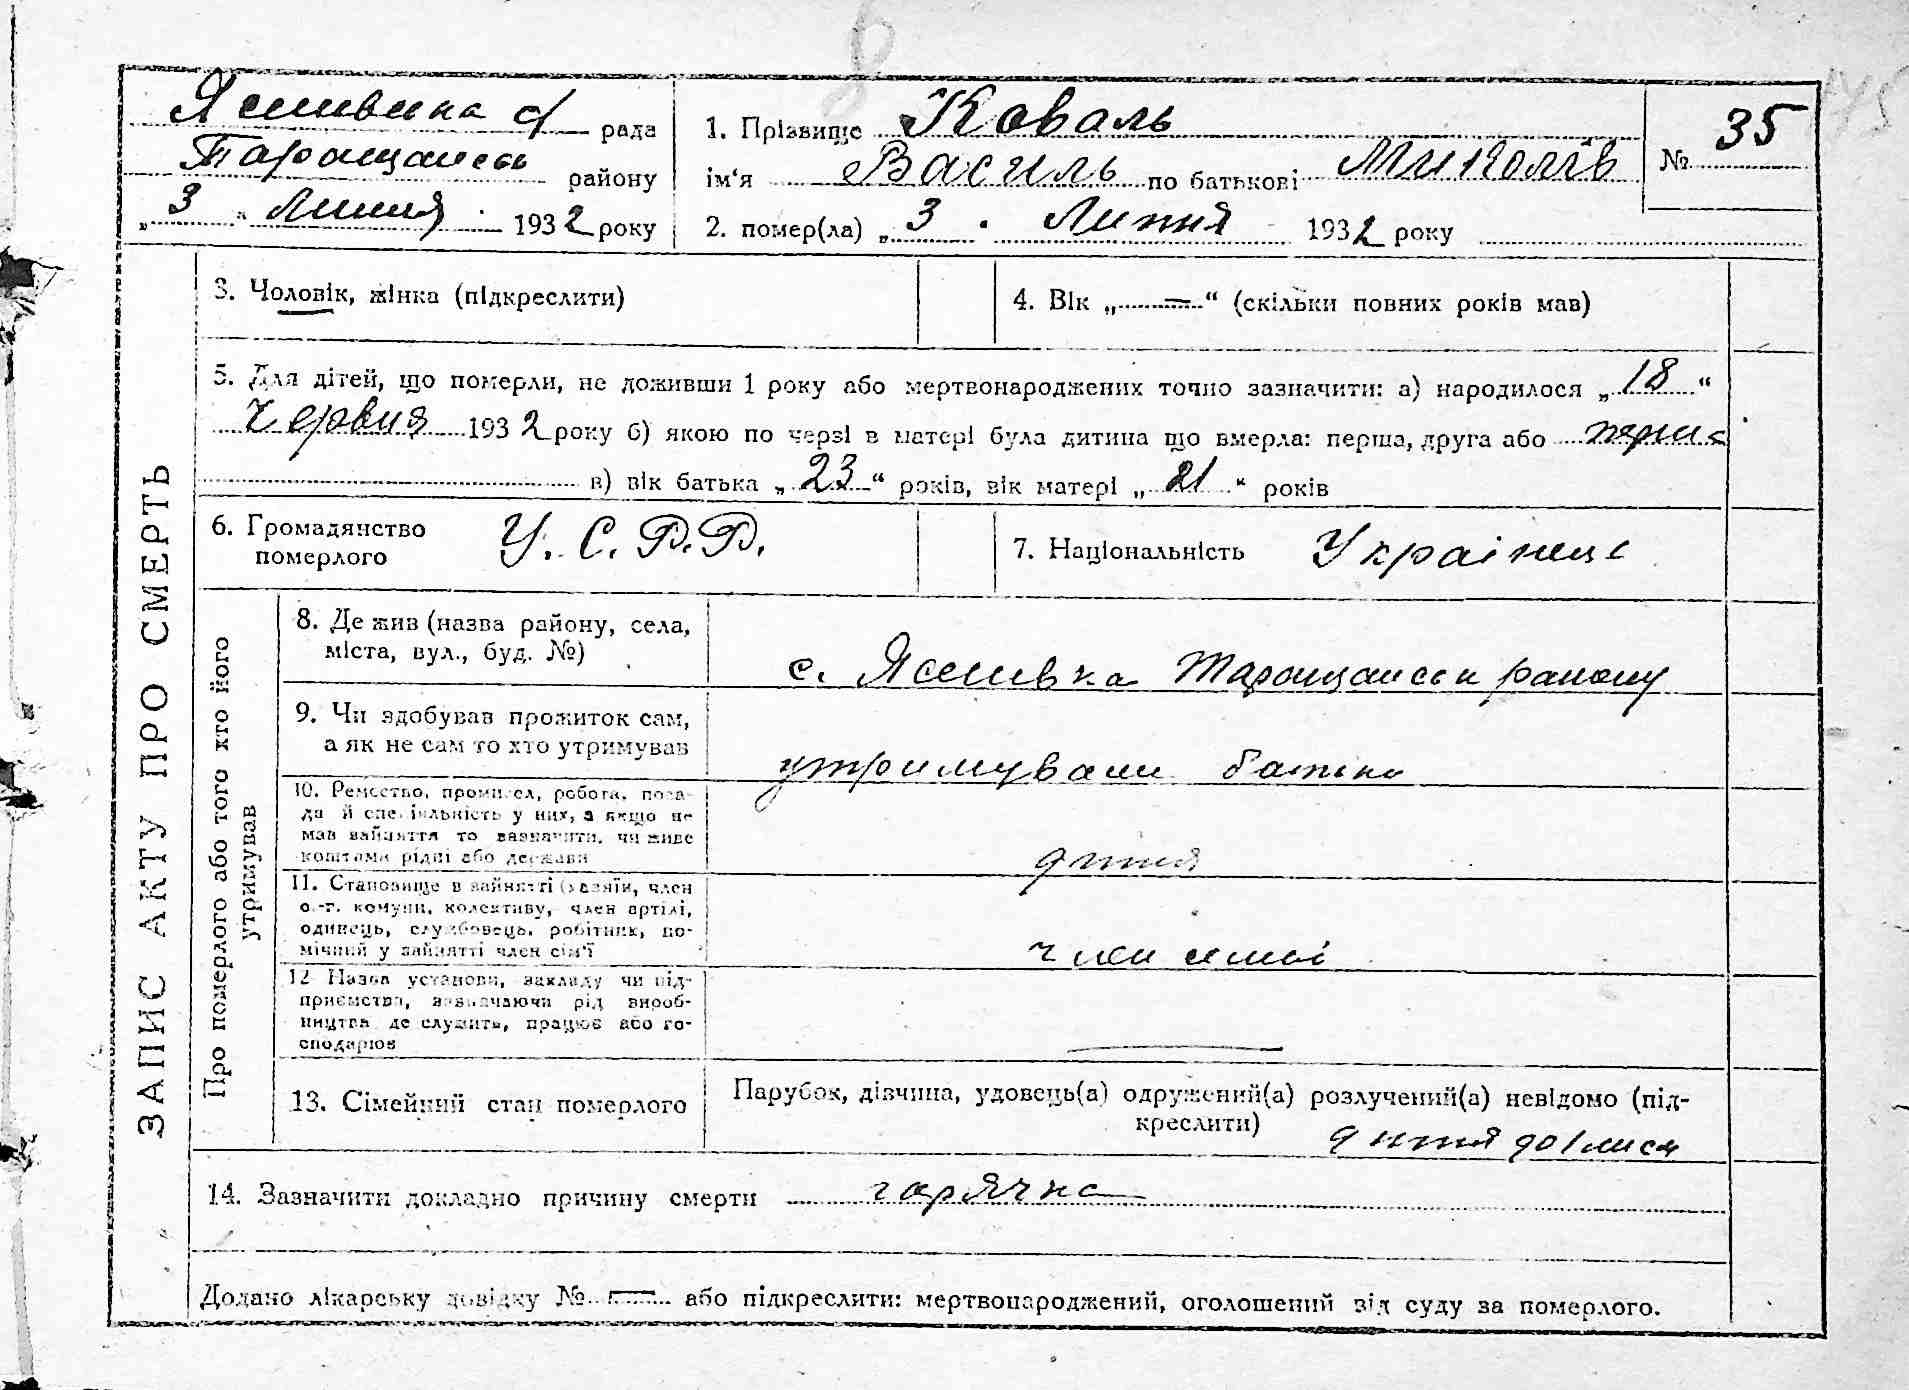 Ясинівська с/ рада
Таращанськ району
„3“ Липня 1932 року
1. Прізвище Коваль
ім'я Василь по батькові Миколів
№ 35
2. помер(ла) „3. Липня 1932 року
3. Чоловік, жінка (підкреслити)
4. Вік „ — “ (скільки повних років мав)
5. Для дітей, що померли, не доживши 1 року або мертвонароджених точно зазначити: а) народилося „18“
Червня 1932 року б) якою по черзі в матері була дитина що вмерла: перша, друга або перша
в) вік батька „23“ років, вік матері „21“ років
6. Громадянство
померлого
У. С. Р. Р.
7. Національність Украінец
ЗАПИС АКТУ ПРО СМЕРТЬ
Про померлого або того кто його
утримував
8. Де жив (назва району, села,
міста, вул., буд. №)
с. Ясинівка Таращанськ району
9. Чи здобував прожиток сам,
а як не сам то хто утримував
утримували батьки
10. Ремество, промисел, робота, поса-
да й спеціяльність у них, а якщо не
мав зайняття то зазначити, чи живе
коштами рідні або держави
дитя
11. Становище в зайнятті (хазяїн, член
с.-г. комуни, колективу, член артілі,
одинець, службовець, робітник, по-
мічний у зайнятті член сім'ї
член симьі
12 Назва установи, закладу чи під-
приємства, зазначаючи рід вироб-
ництва де служить, працює або го-
сподарює
13. Сімейний стан померлого
Парубок, дівчина, удовець(а) одружений(а) розлучений(а) невідомо (під-
креслити)
дитя до 1 міся
14. Зазначити докладно причину смерти гарячка
Додано лікарську довідку № — або підкреслити: мертвонароджений, оголошений від суду за померлого.